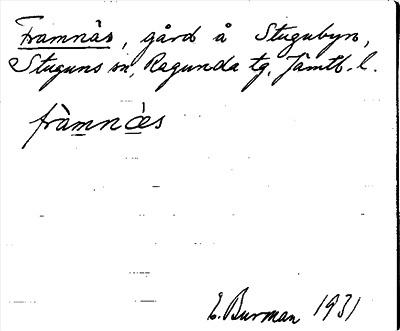 Framnäs, gård å Stugubyn,
Stuguns sn, Ragunda tg, Jämtl. l.
fràmnæ̀s
E. Burman 1931